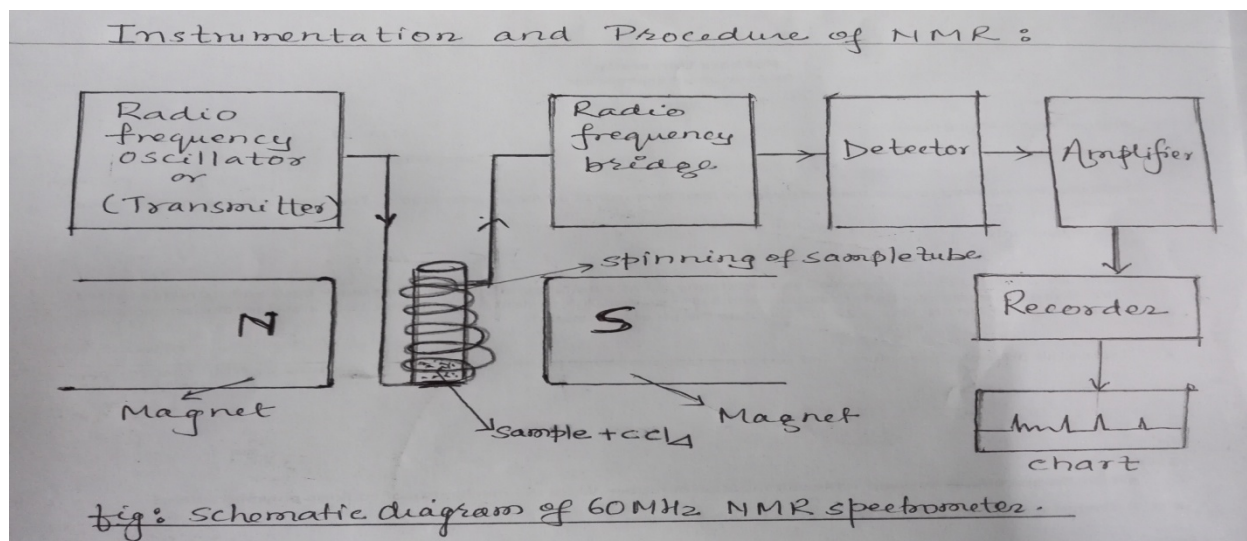 Instrumentation and Procedure of NMR:
Radio
frequency
oscillator
or
(Transmitter)
Radio
frequency
bridge
Detector
Amplifier
spinning of sample tube
N
S
Recorder
Magnet
Sample + CCl4
Magnet
chart
fig: Schematic diagram of 60MHz NMR spectrometer.